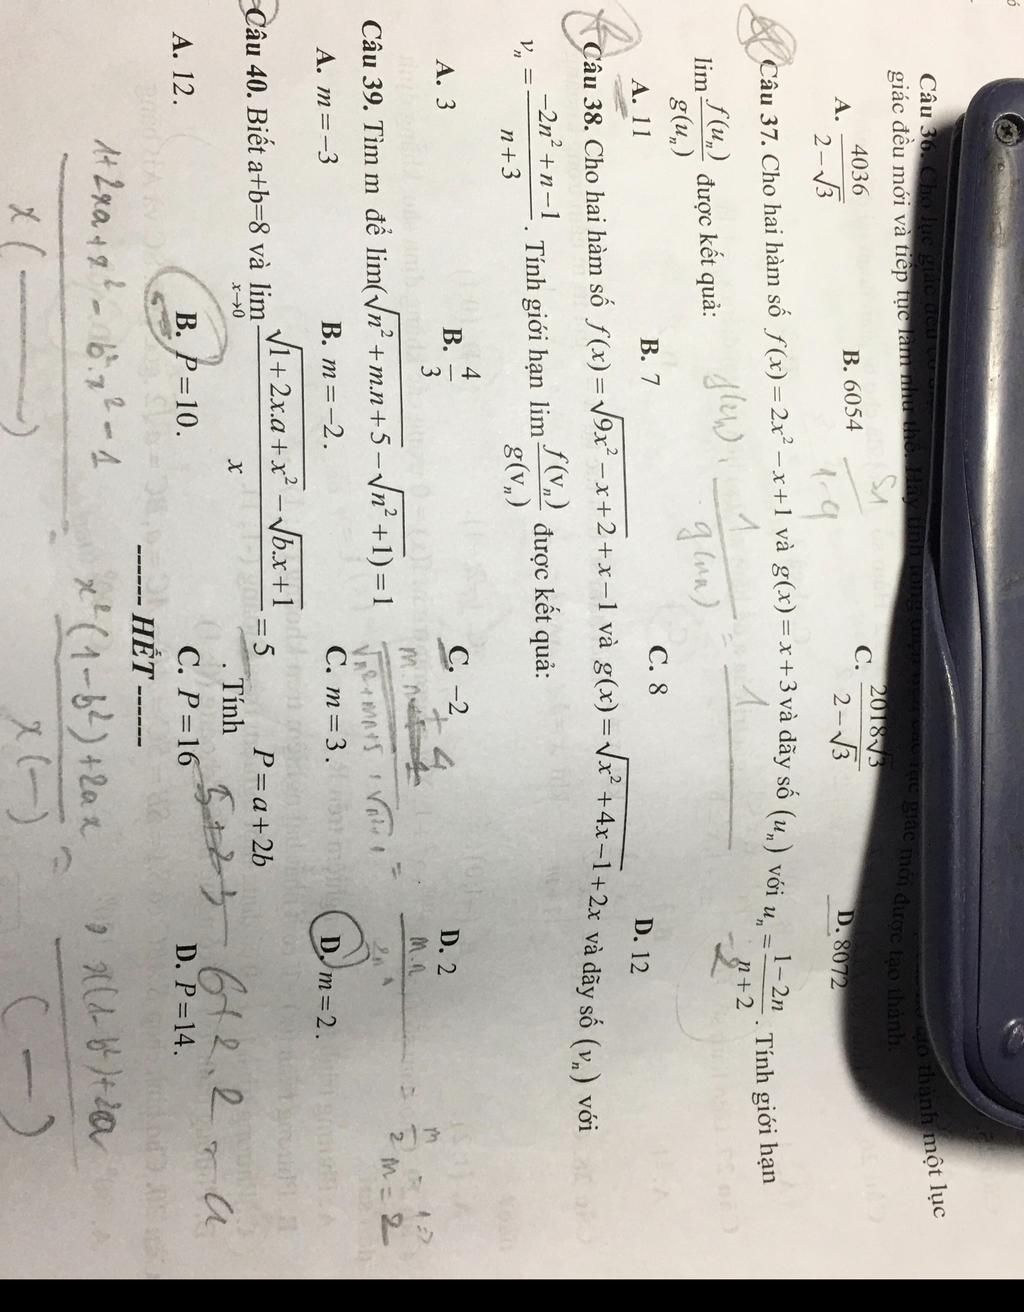 Câu 36. Cho lục giác đều thành một lục
giác đều mới và tiếp tục làm như thế. Hãy tính lục giác mới được tạo thành.
A. \frac{4036}{2-\sqrt{3}} B. 6054 C. \frac{2018\sqrt{3}}{2-\sqrt{3}} D. 8072
S1
1-q
Câu 37. Cho hai hàm số f(x) = 2x² - x + 1 và g(x) = x + 3 và dãy số (uₙ) với uₙ = \frac{1-2n}{n+2}. Tính giới hạn
-2
lim \frac{f(uₙ)}{g(uₙ)} được kết quả:
A. 11 B. 7 C. 8 D. 12
Câu 38. Cho hai hàm số f(x) = \sqrt{9x² - x + 2} + x - 1 và g(x) = \sqrt{x² + 4x - 1} + 2x và dãy số (vₙ) với
vₙ = \frac{-2n² + n - 1}{n+3}. Tính giới hạn lim \frac{f(vₙ)}{g(vₙ)} được kết quả:
A. 3 B. \frac{4}{3} C. -2 D. 2
Câu 39. Tìm m để lim(\sqrt{n² + m.n + 5} - \sqrt{n² + 1}) = 1
m = 2
A. m = -3 B. m = -2. C. m = 3. D. m = 2.
Câu 40. Biết a+b=8 và lim_{x→0} \frac{\sqrt{1+2x.a+x²} - \sqrt{b.x+1}}{x} = 5. Tính P = a + 2b
A. 12. B. P = 10. C. P = 16 D. P = 14.
------ HẾT ------
1 + 2xa + x² - b².x² - 1
x²(1 - b²) + 2ax =
x(1 - b²) + 2a